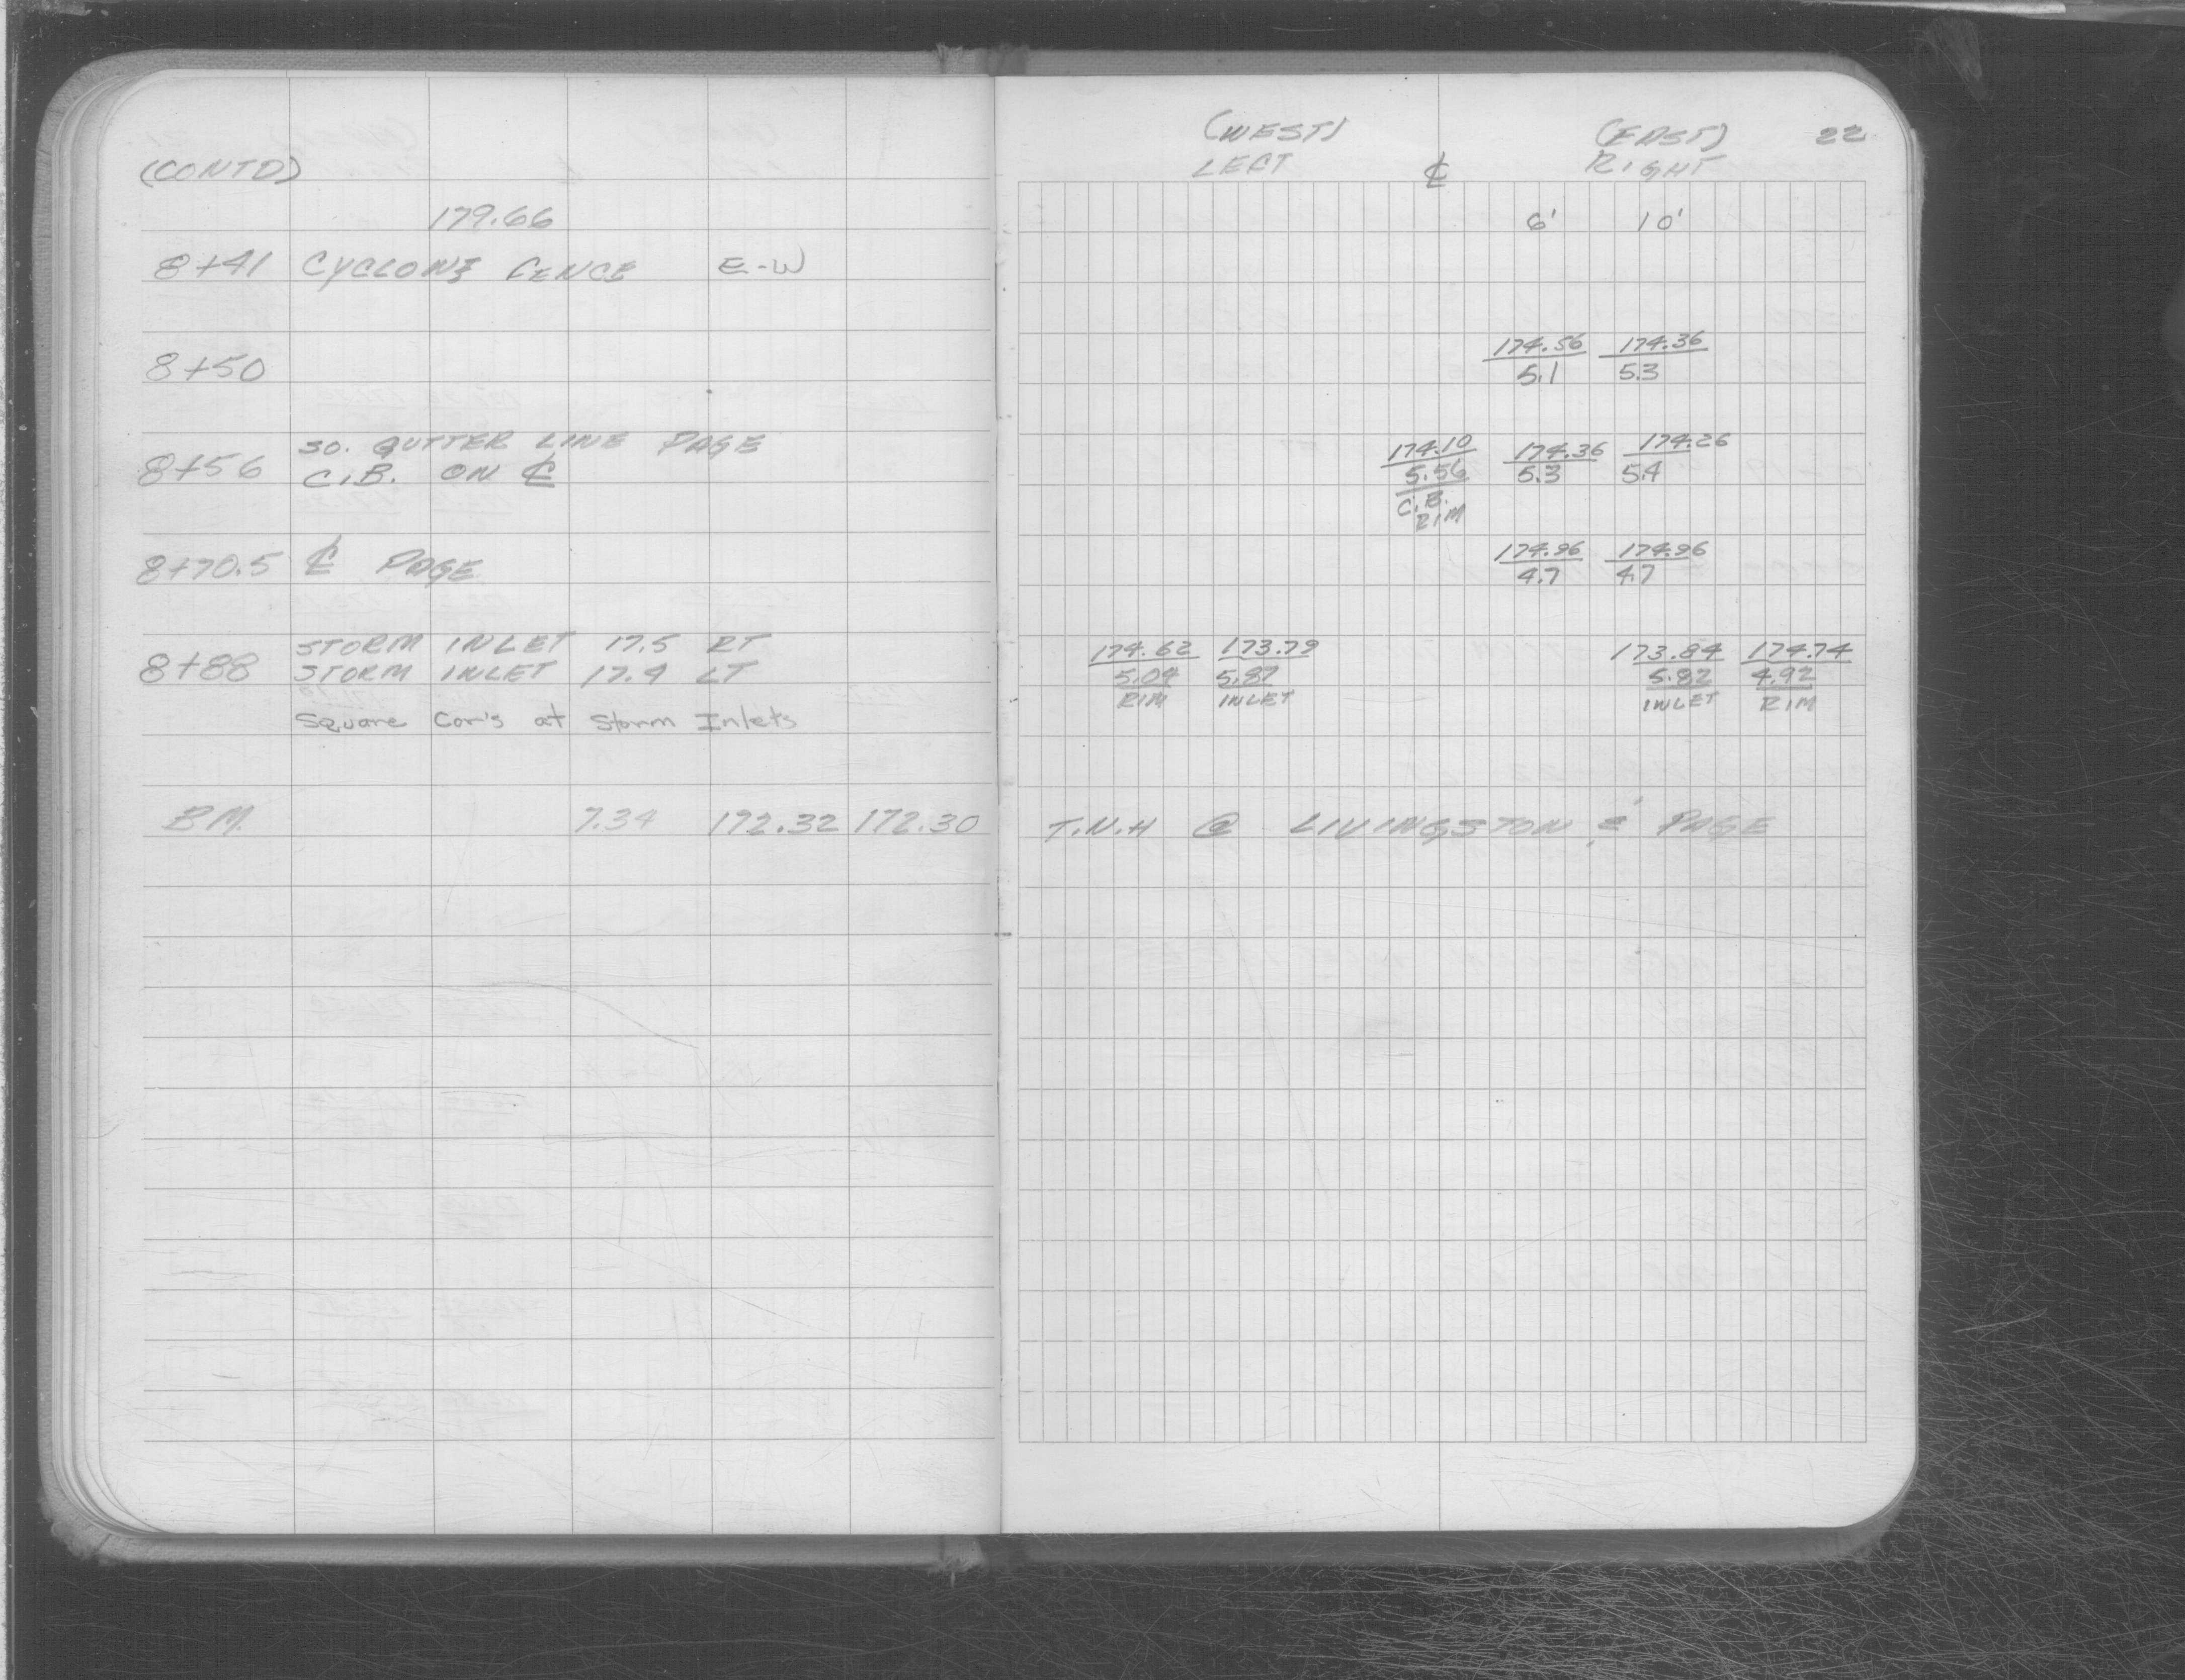 (CONTD)
179.66
8+41 CYCLONE FENCE E-W
8+50
8+56 SO. GUTTER LINE PAGE
C.B. ON ℄
8+70.5 ℄ PAGE
8+88 STORM INLET 17.5 RT
STORM INLET 17.4 LT
Square Cor's at Storm Inlets
B.M. 7.34 172.32 172.30
(WEST) (EAST) 22
LEFT ℄ RIGHT
6' 10'
174.56 174.36
5.1 5.3
174.10 174.36 174.26
5.56 5.3 5.4
C.B.
RIM
174.96 174.96
4.7 4.7
174.62 173.79 173.84 174.74
5.04 5.87 5.82 4.92
RIM INLET INLET RIM
T.N.H @ LIVINGSTON & PAGE